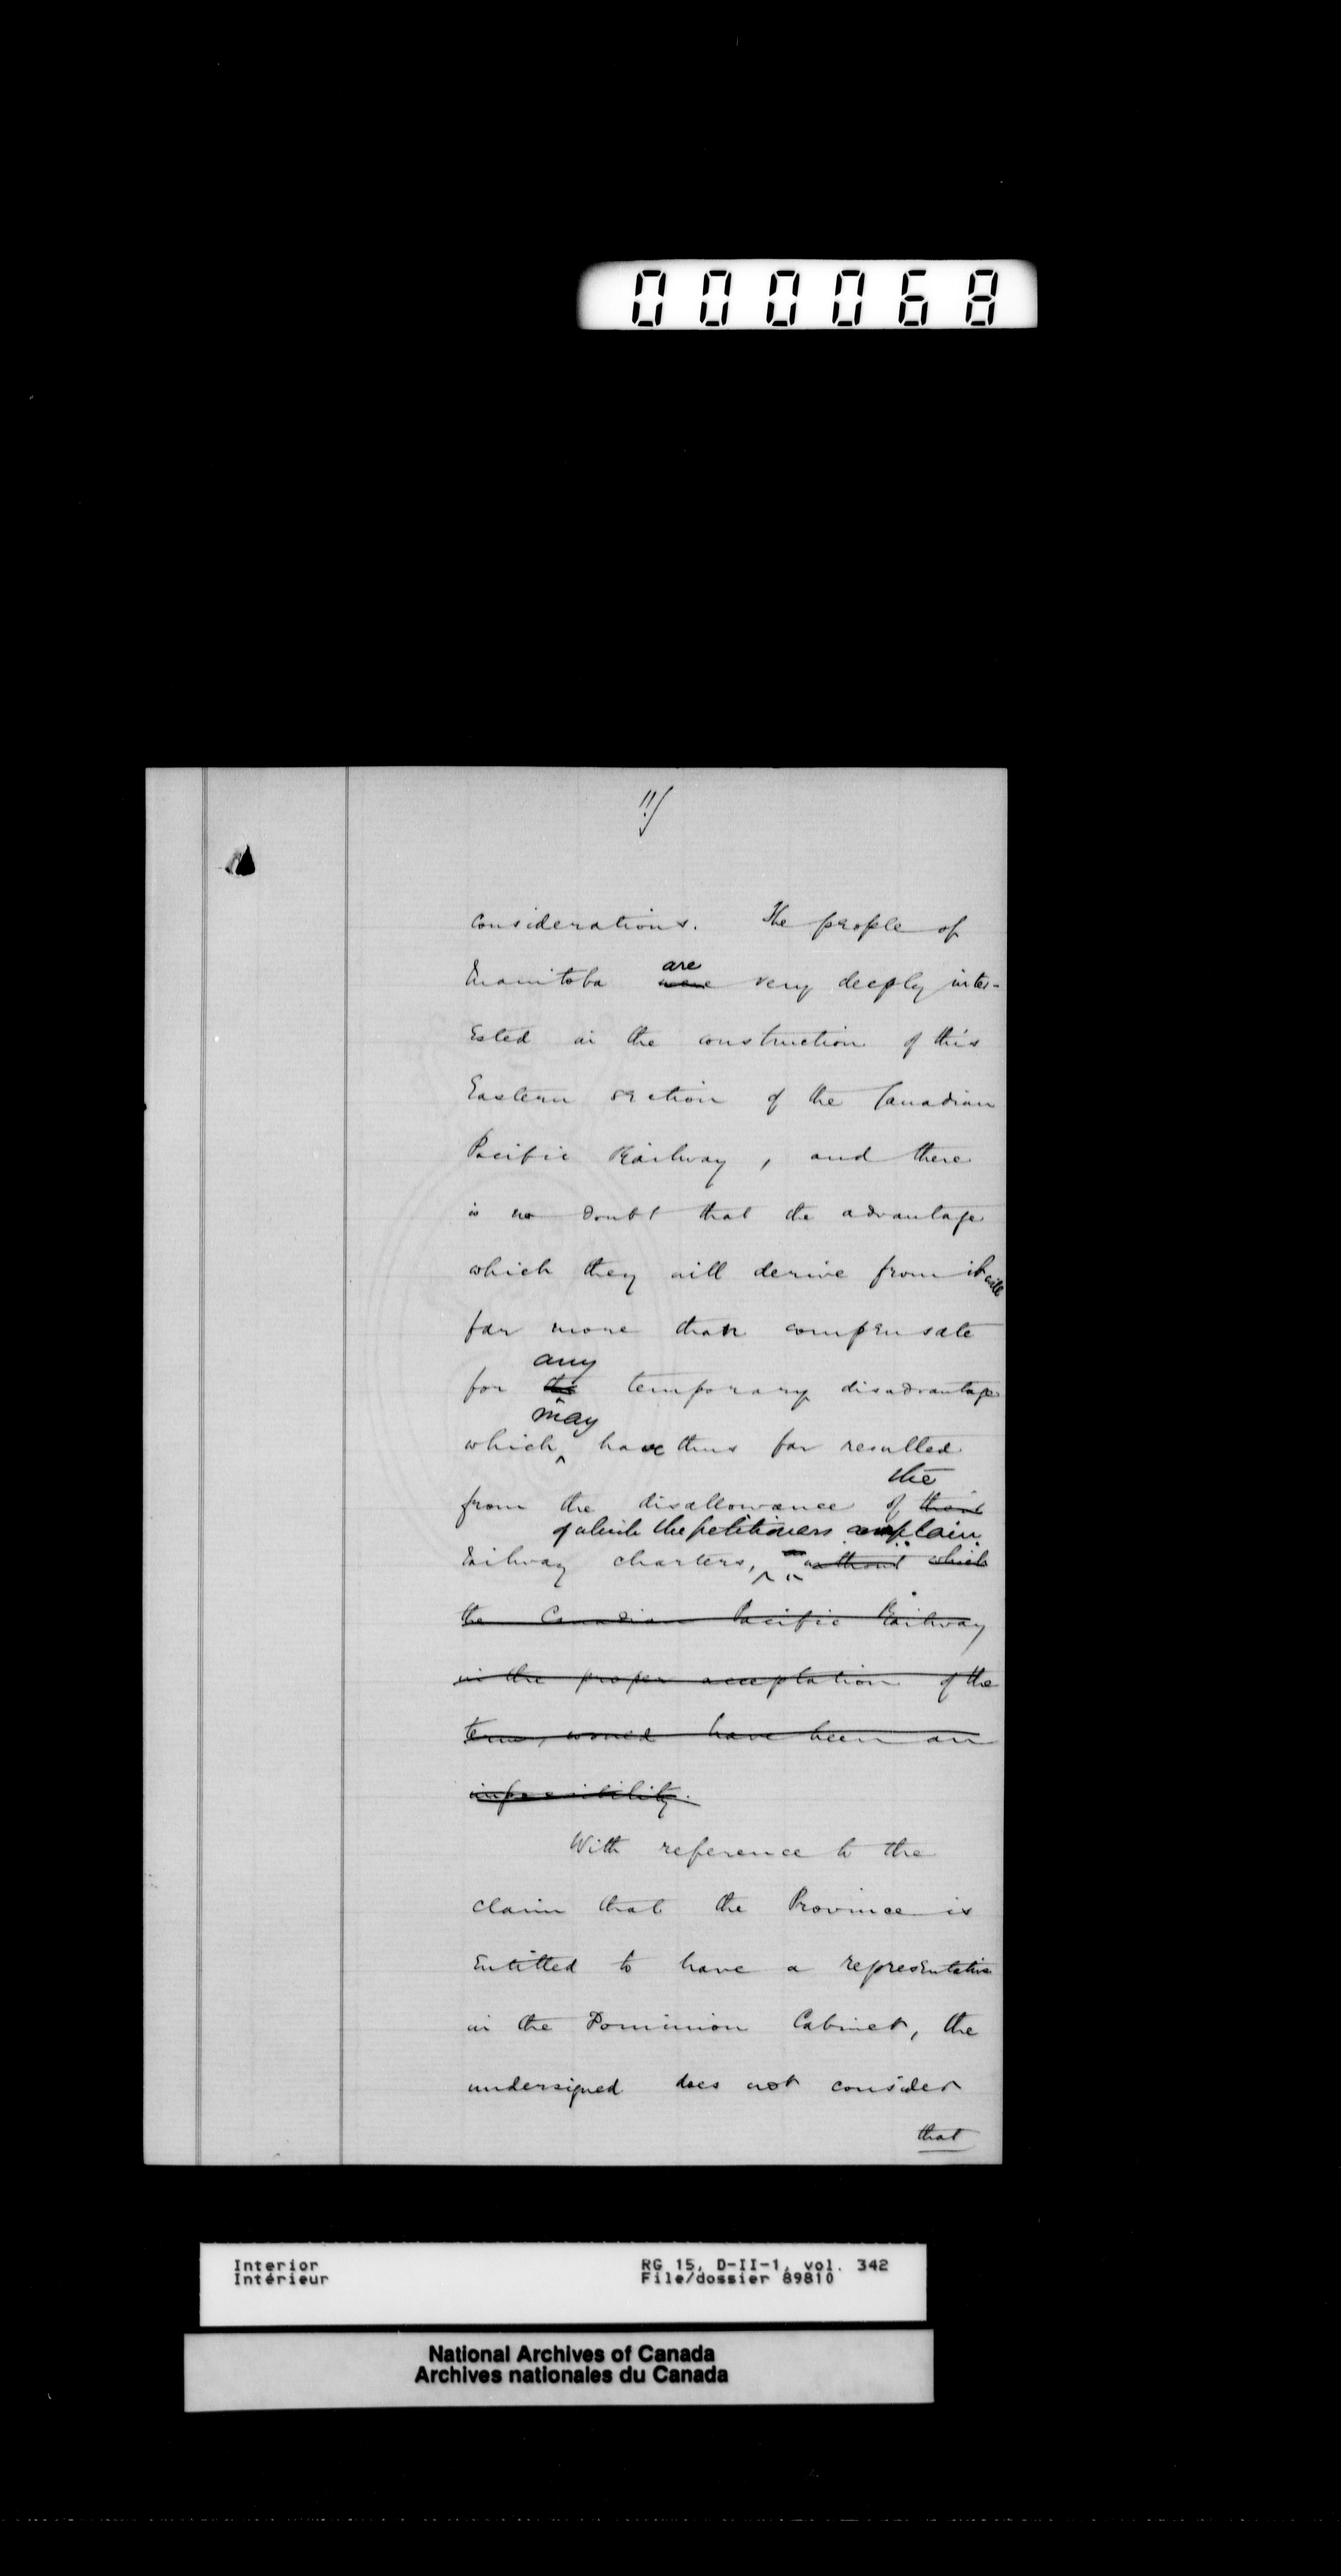 000068
11/
considerations. The people of
are
Manitoba were very deeply inter-
ested in the construction of this
Eastern section of the Canadian
Pacific Railway, and there
is no doubt that the advantage
which they will derive from it will
far more than compensate
any
for the temporary disadvantage
may
which have thus far resulted
the
from the disallowance of
of which the petitioners complain
Railway charters, without which
the Canadian Pacific Railway
in the proper acceptation of the
term, would have been an
impossibility.
With reference to the
claim that the Province is
Entitled to have a representative
in the Dominion Cabinet, the
undersigned does not consider
that
Interior RG 15, D-II-1, vol. 342
Intérieur File/dossier 89810
National Archives of Canada
Archives nationales du Canada